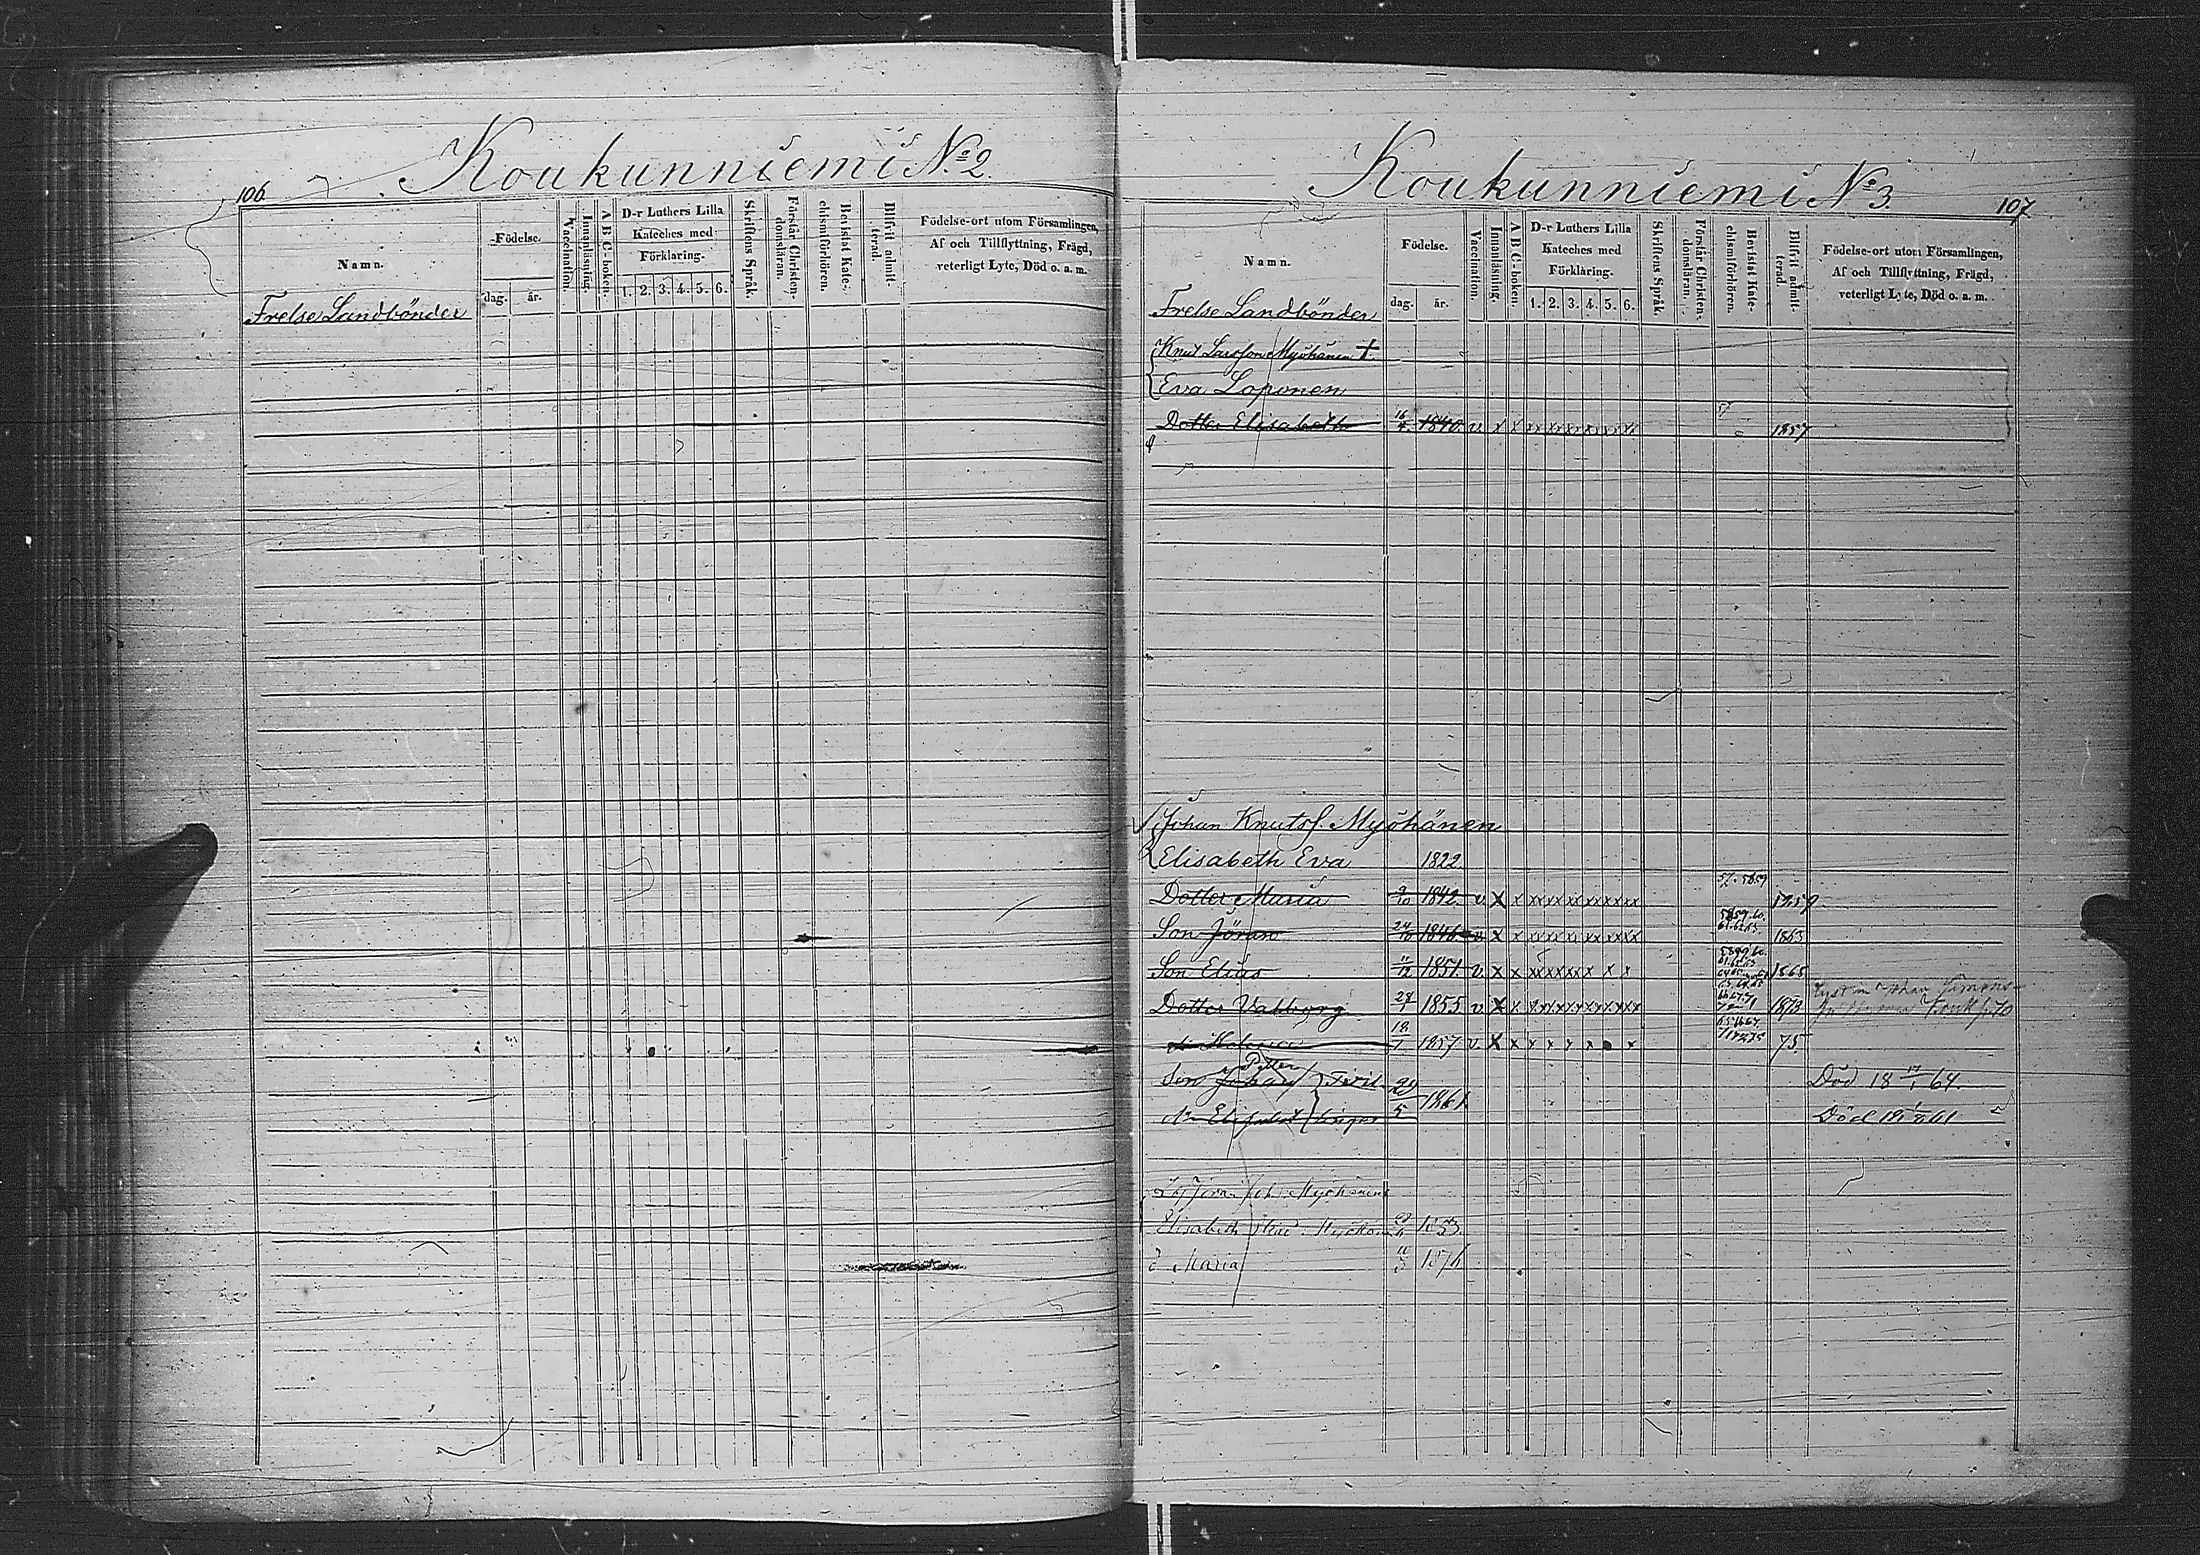 106.
Koukunniemi No 2.
Namn.
Födelse.
dag. år.
Vaccination.
Innanläsning.
A B C-boken.
D-r Luthers Lilla
Kateches med
Förklaring.
1. 2. 3. 4. 5. 6.
Skriftens Språk.
Förstår Christen-
domsläran.
Bevistat Kate-
chismiförhören.
Blifvit admit-
terad.
Födelse-ort utom Församlingen,
Af och Tillflyttning, Frägd,
veterligt Lyte, Död o. a. m.
Frelse Landbönder
Koukunniemi No 3.
107
Namn.
Födelse.
dag. år.
Vaccination.
Innanläsning.
A B C-boken.
D-r Luthers Lilla
Kateches med
Förklaring.
1. 2. 3. 4. 5. 6.
Skriftens Språk.
Förstår Christen-
domsläran.
Bevistat Kate-
chismiförhören.
Blifvit admit-
terad.
Födelse-ort utom Församlingen,
Af och Tillflyttning, Frägd,
veterligt Lyte, Död o. a. m.
Frelse Landbönder
Knut Larsson Myöhänen †.
Eva Loponen
Dotter Elisabeth 16/4 1840. v. x x xx xx xx xx xx xx 57 1857
Johan Knutsf. Myöhänen
Elisabeth Eva 1822.
Dotter Maria 9/10 1842. v. x x xx xx xx xx xx xx 57. 58 59 1859.
Son Jöran 24/10 1846 v x x xx xx xx xx xx xx 58 59. 60. 61. 62. 63. 1863
Son Elias 11/12 1851. v. x x xx xx xx x x x 1868
Dotter Valborg 1855. v. x x xx xx xx xx xx xx 1873
18/7 1857 v. x x x x x x x 75.
Son Johan Petter Tvil- 29/5 1861. Död 18 64.
Elisabet lingar Död 18 61
Myöhänen
Elisabeth 1853.
d Maria